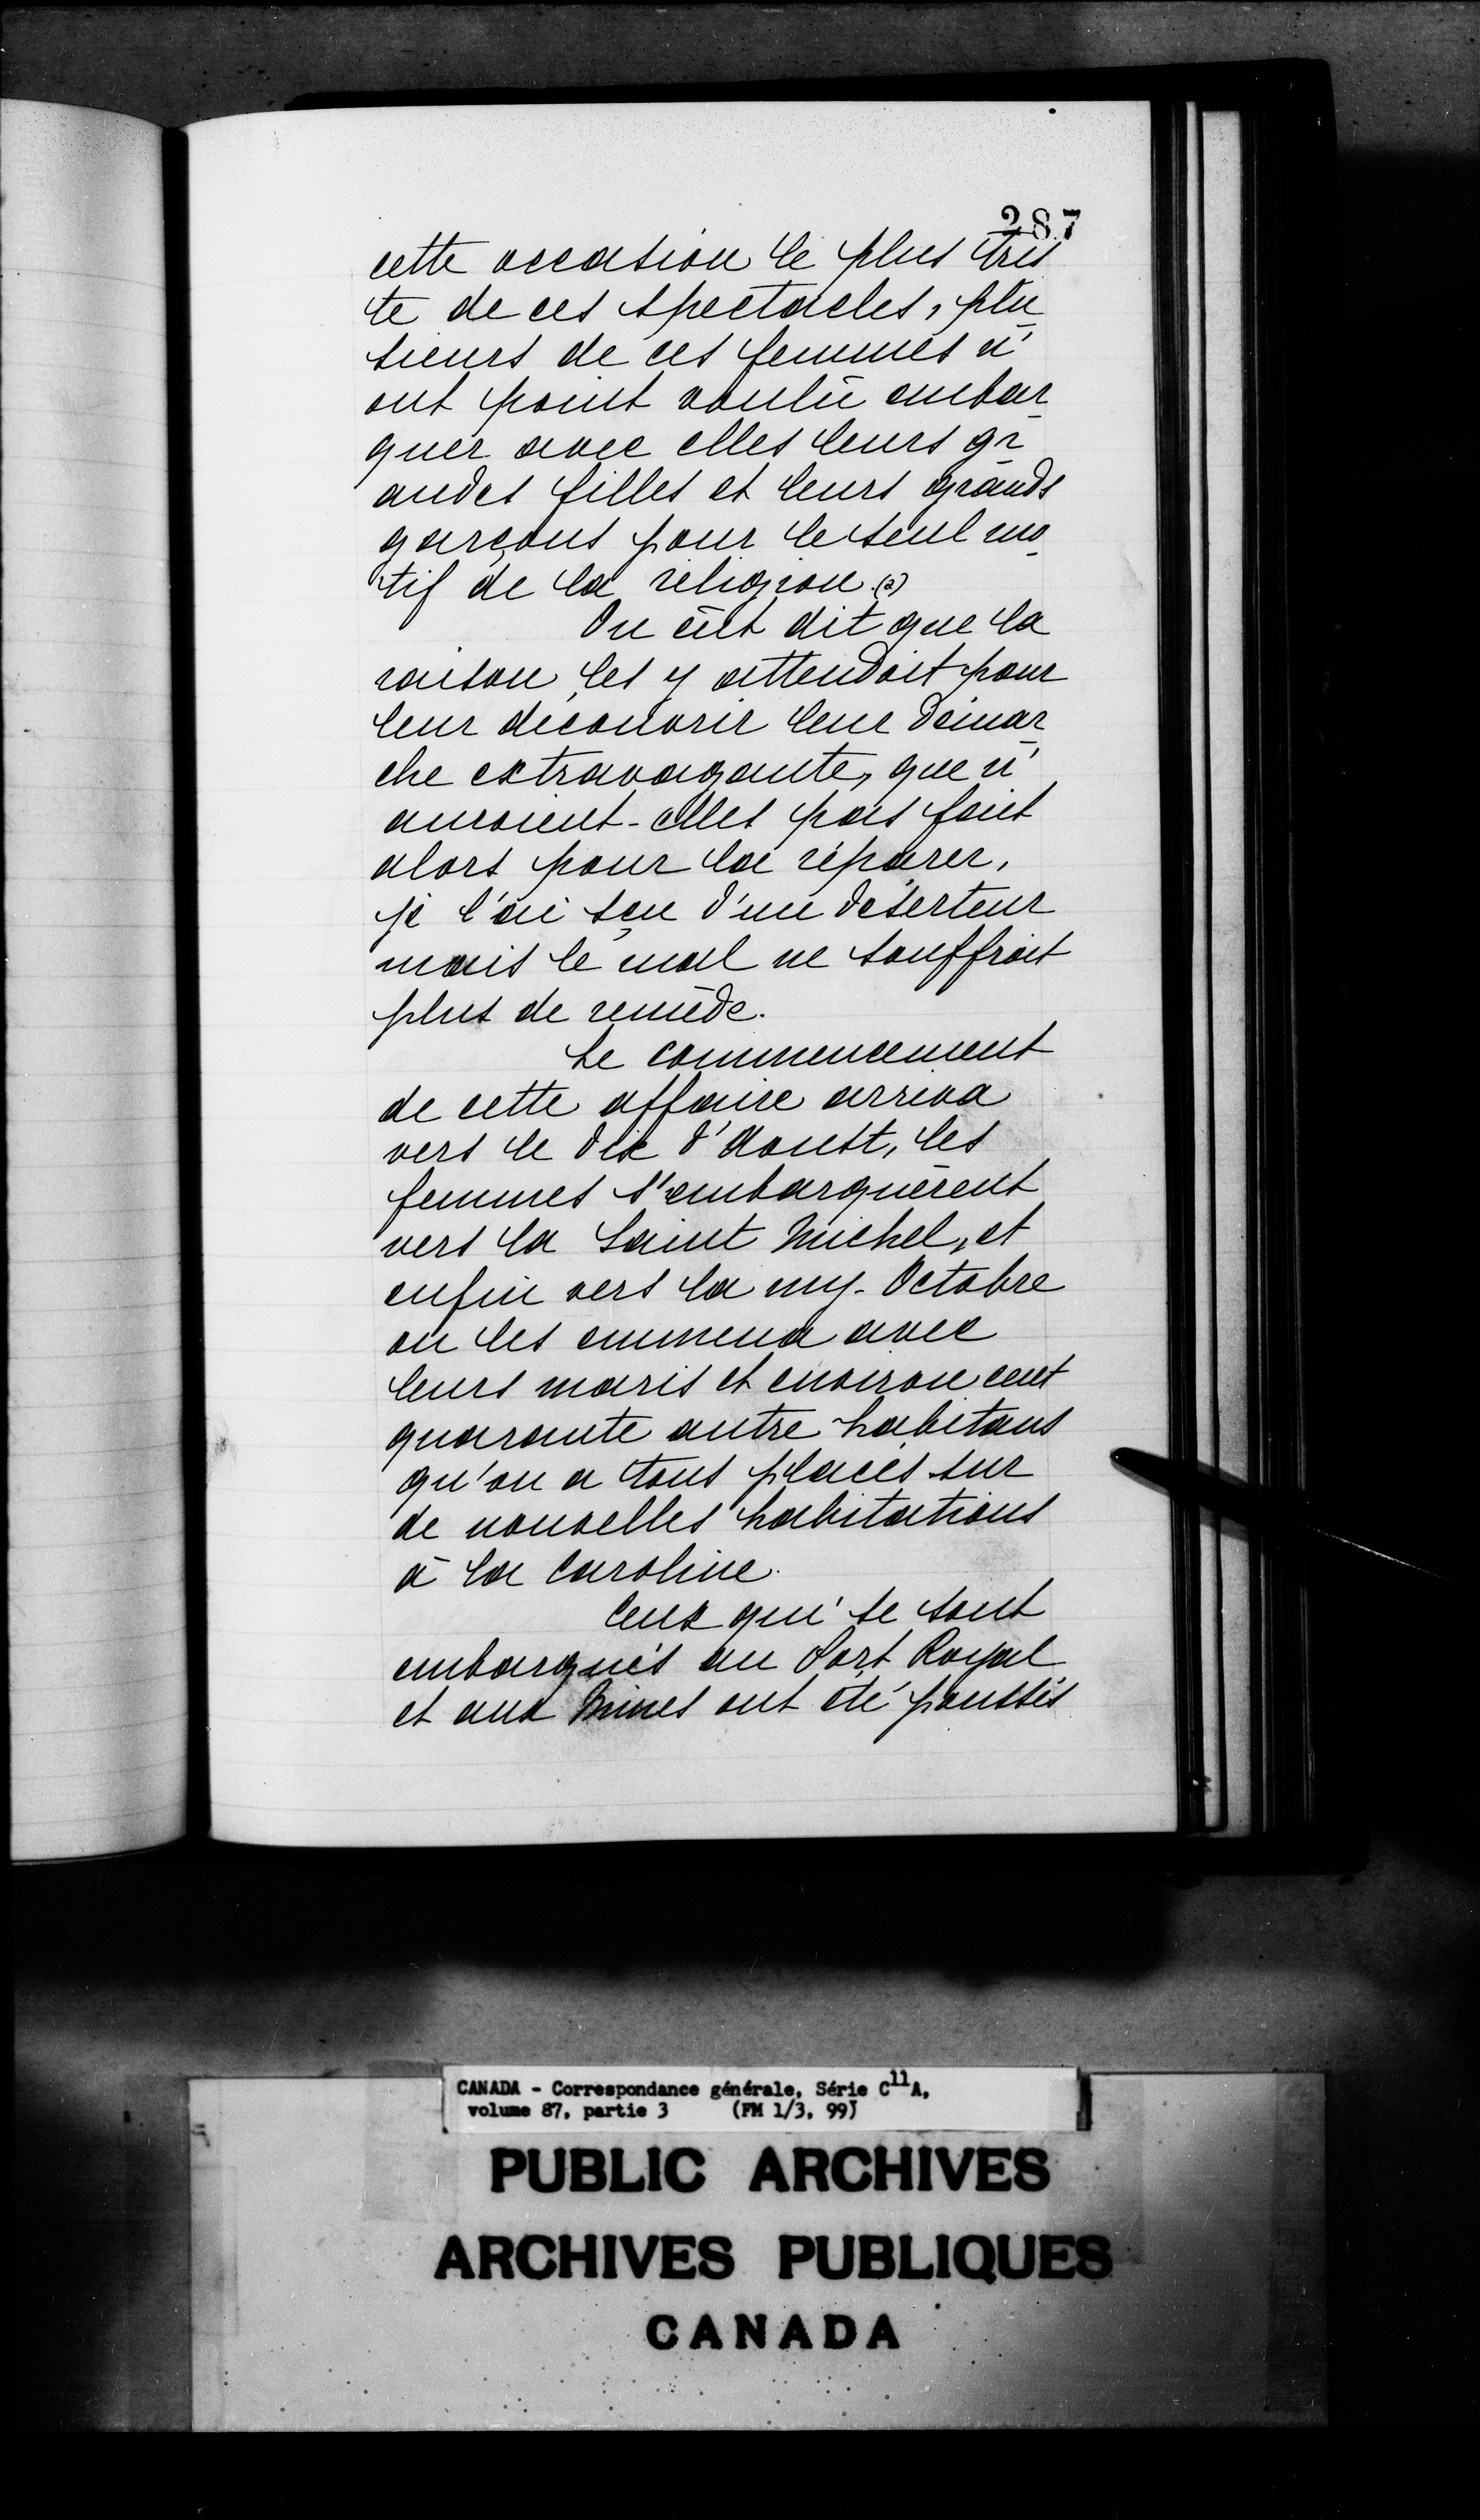 287
cette occasion le plus tris
te de ces spectacles, plu
sieurs de ces femmes n'
ont point voulu embar
quer avec elles leurs gr
andes filles et leurs grands
garçons pour le seul mo
tif de la religion. (2)
On eût dit que la
raison les y attendoit pour
leur découvrir leur démar
che extravagante, que n'
auroient-elles pas fait
alors pour la réparer,
je l'ai sçu d'un déserteur
mais le mal ne souffroit
plus de remède.
Le commencement
de cette affaire arriva
vers le dix d'Aoust, les
femmes s'embarquèrent
vers la Saint Michel, et
enfin vers la my-Octobre
on les emmena avec
leurs maris et environ cent
quarante autre habitans
qu'on a tous placés sur
de nouvelles habitations
à la Caroline.
Ceux qui se sont
embarqués au Port Royal
et aux Mines ont été poussés
CANADA - Correspondance générale, Série C11A,
volume 87, partie 3 (FM 1/3, 99)
PUBLIC ARCHIVES
ARCHIVES PUBLIQUES
CANADA